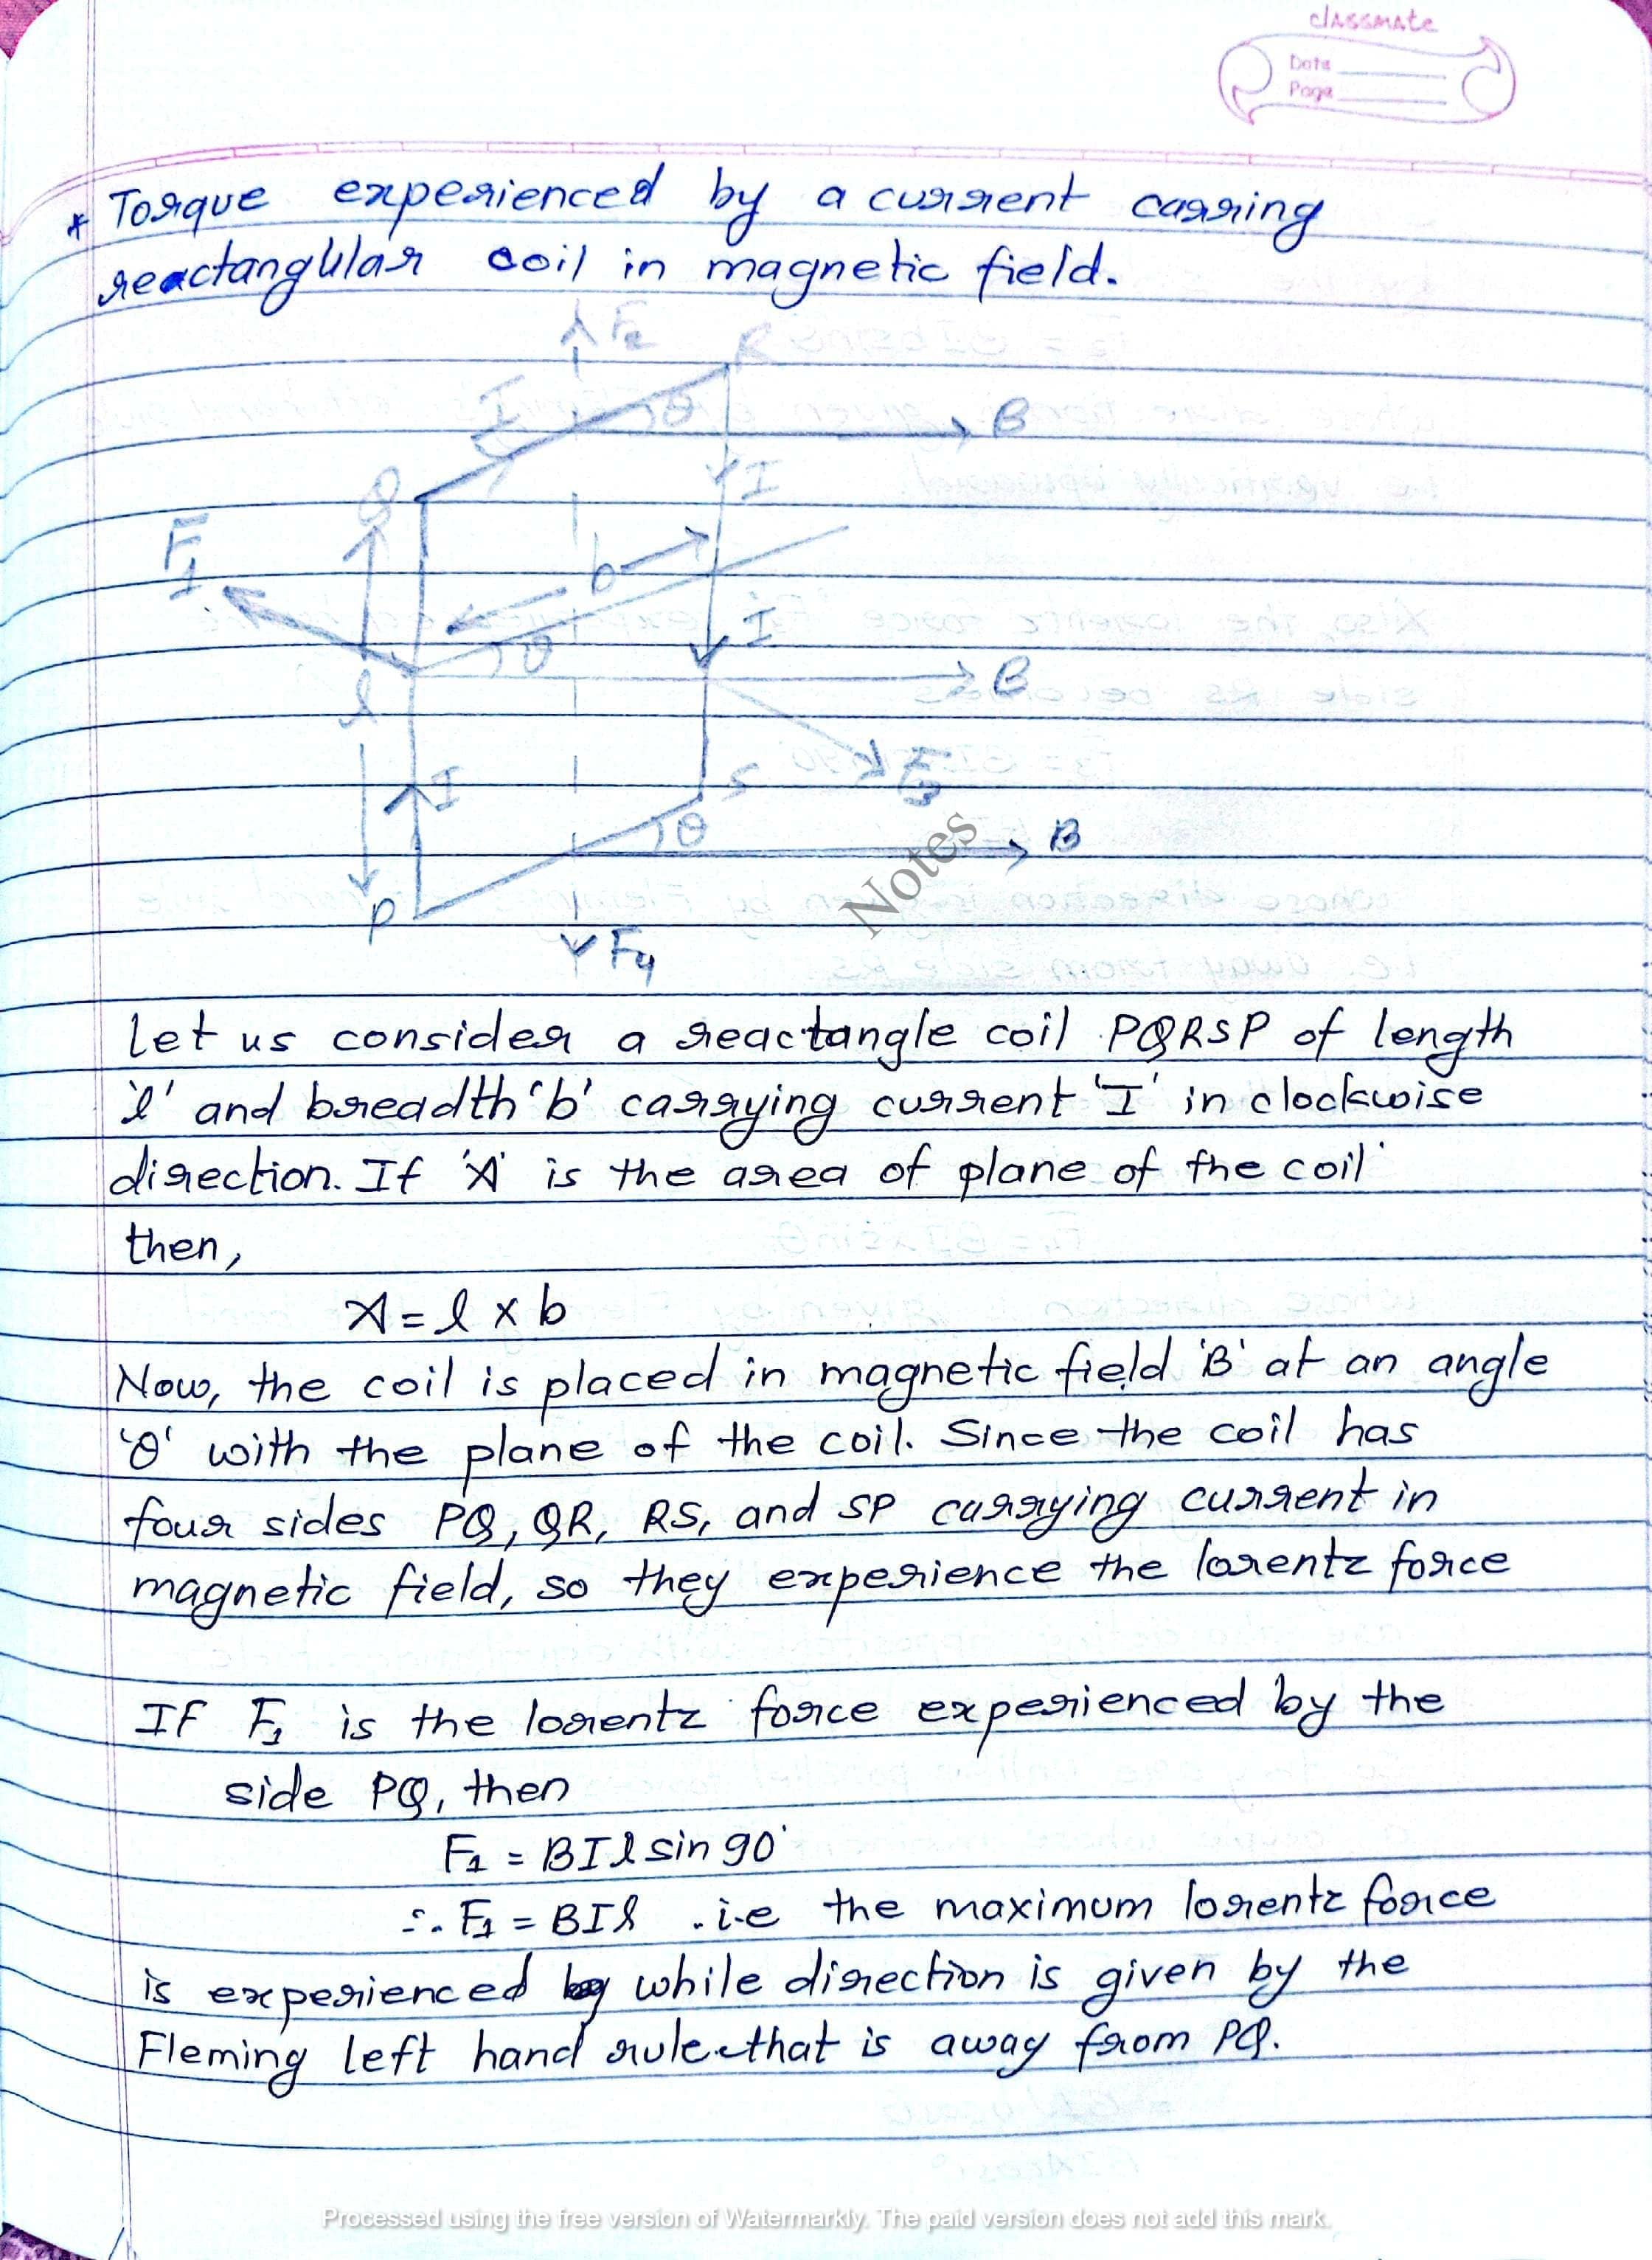 classmate
Date
Page
* Torque experienced by a current carring
reactangular coil in magnetic field.
F2
R
I
θ
B
Q
I
F1
b
I
θ
B
l
F3
I
S
θ
B
Notes
P
F4
Let us consider a reactangle coil PQRSP of length
'l' and breadth 'b' carrying current 'I' in clockwise
direction. If 'A' is the area of plane of the coil
then,
A = l x b
Now, the coil is placed in magnetic field 'B' at an angle
'θ' with the plane of the coil. Since the coil has
four sides PQ, QR, RS, and SP carrying current in
magnetic field, so they experience the lorentz force
If F1 is the lorentz force experienced by the
side PQ, then
F1 = BIl sin 90°
∴ F1 = BIl .i.e the maximum lorentz force
is experienced by while direction is given by the
Fleming left hand rule that is away from PQ.
Processed using the free version of Watermarkly. The paid version does not add this mark.